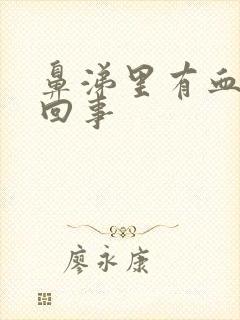 鼻涕里有血
回事
廖永康